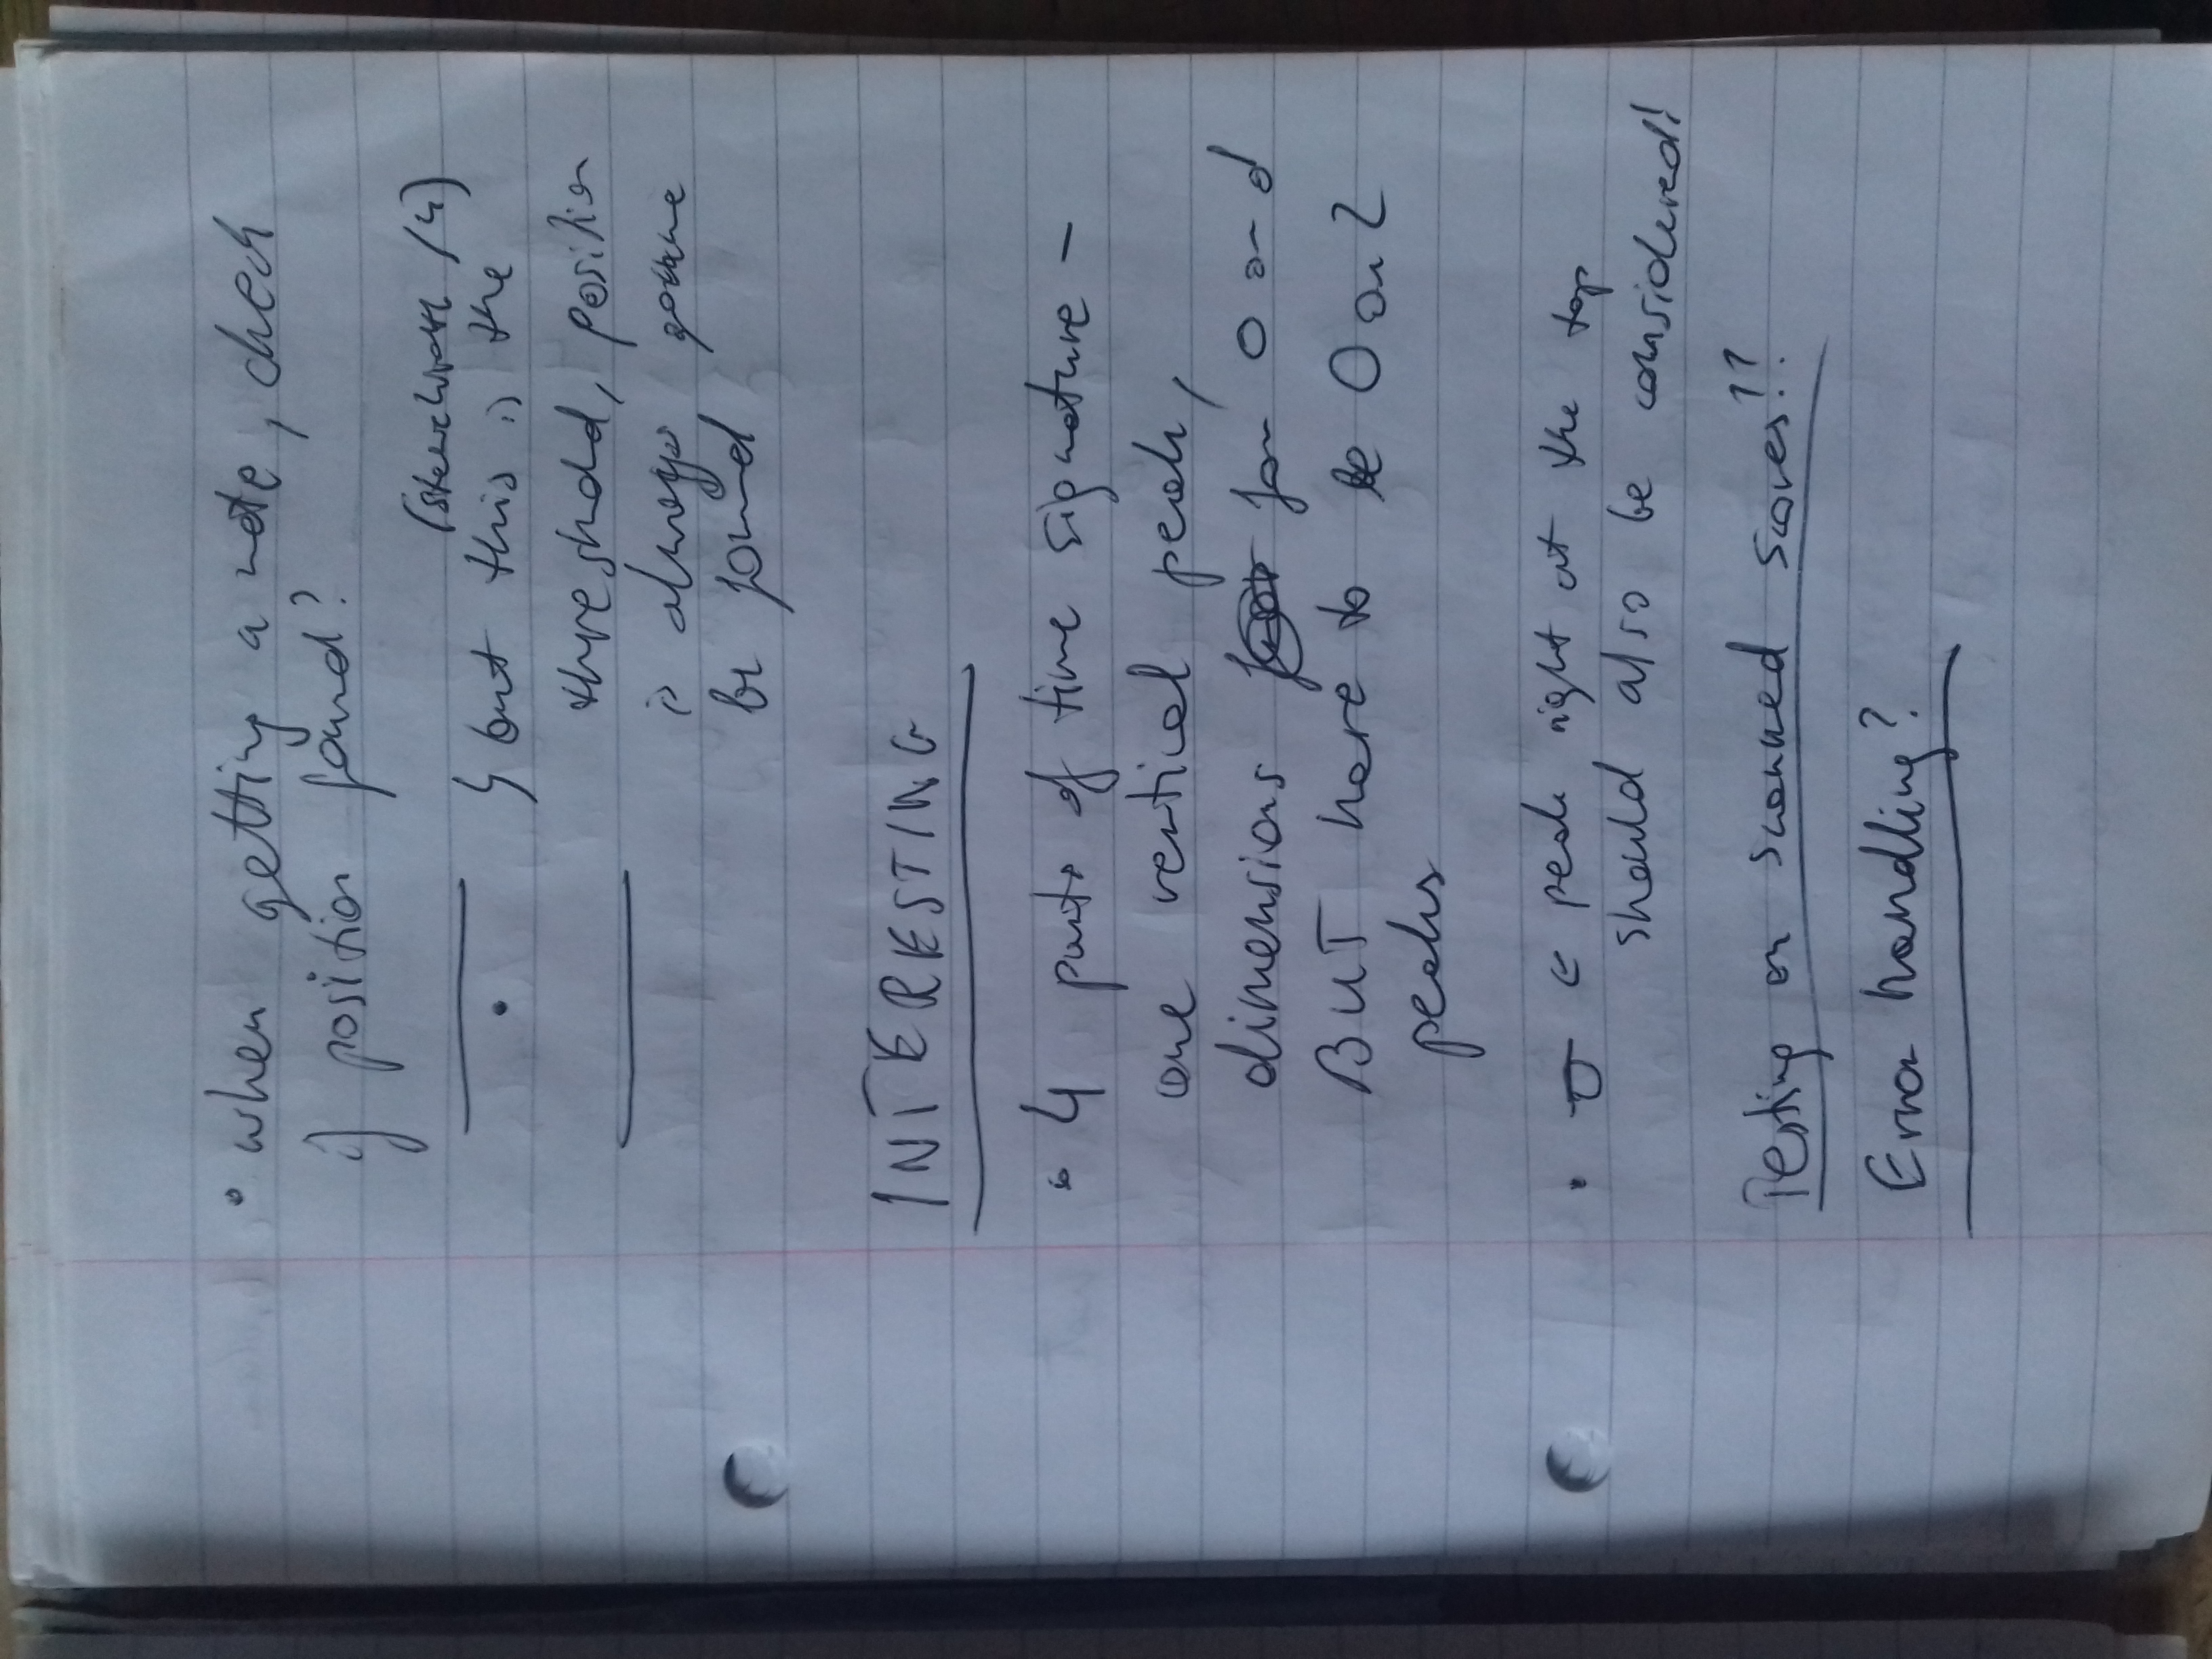 • when getting a note, check
if position found?
/4)
↳ but this is the
threshold, position
is always gonna
be found
INTERESTING
• 4 parts of time signature –
one vertical peak,
dimensions for o or d
BUT have to be 0 or 2
peaks
• ← peak right at the top
should also be considered!
Testing on scanned scores!!
Error handling?